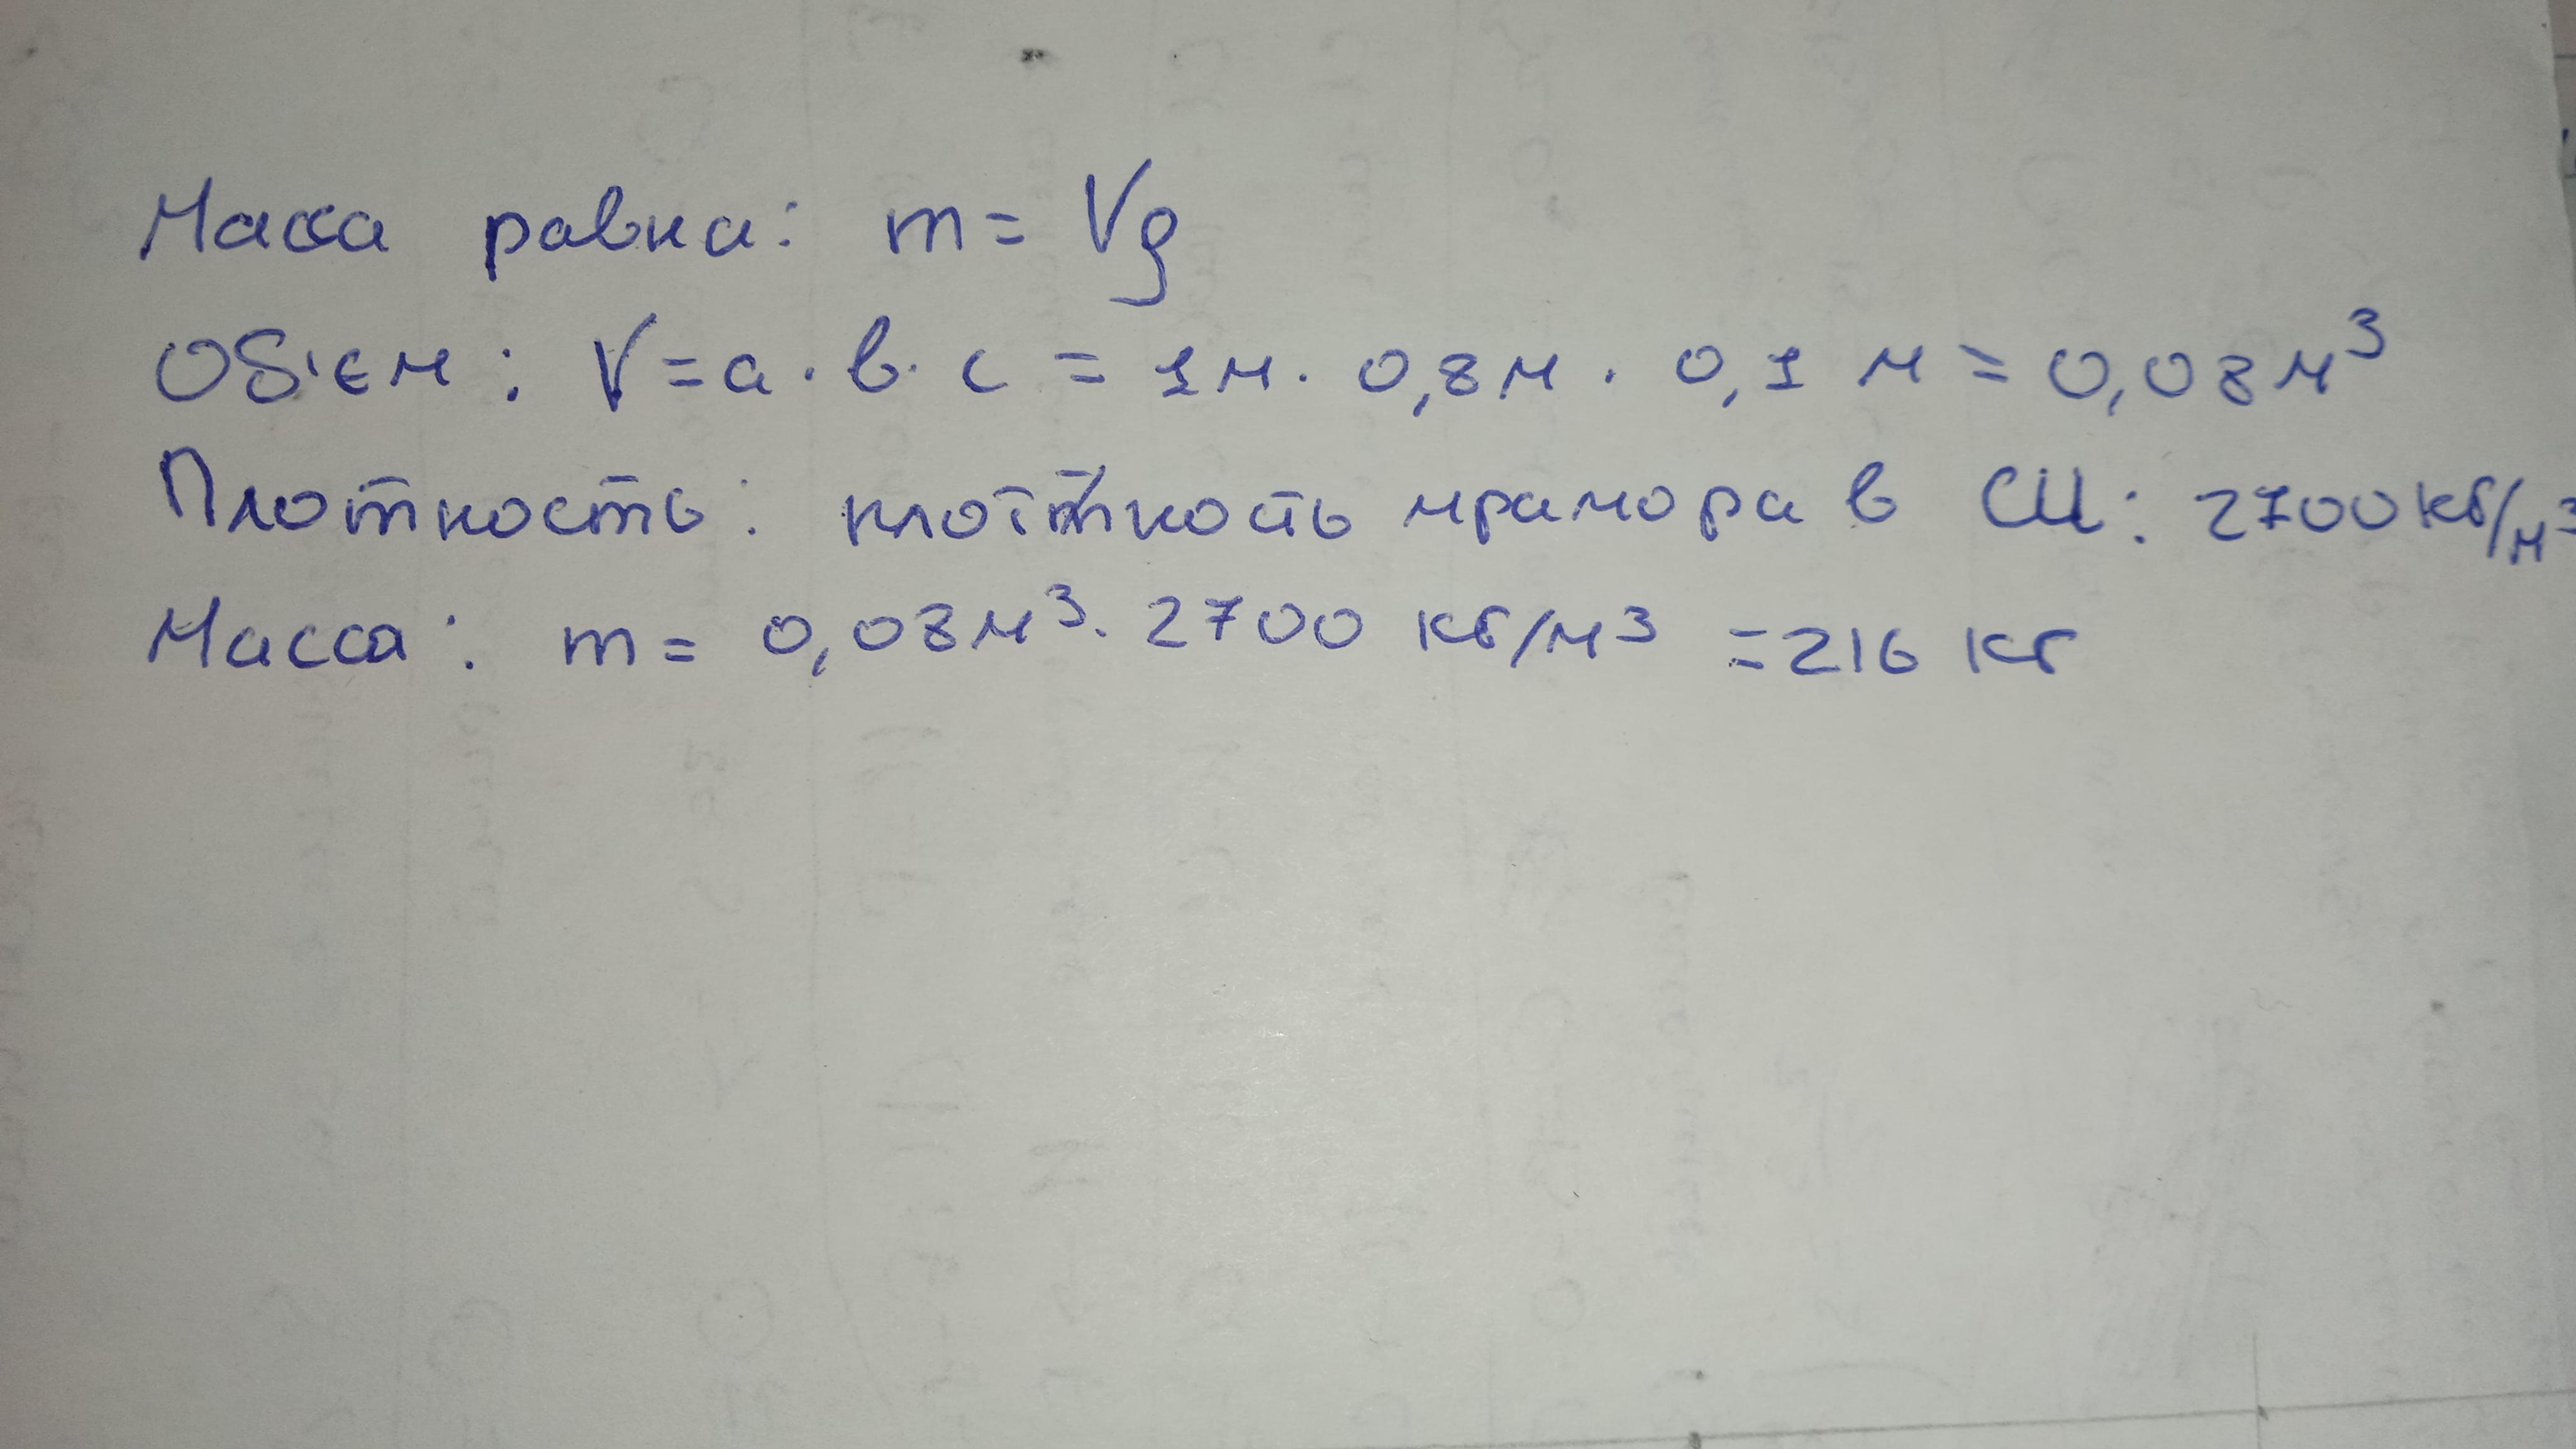 Масса равна: m = Vρ
Об'єм: V = a · в · c = 1м · 0,8м · 0,1 м = 0,08м³
Плотность: плотность мрамора в СИ: 2700кг/м³
Масса: m = 0,08м³ · 2700 кг/м³ = 216 кг